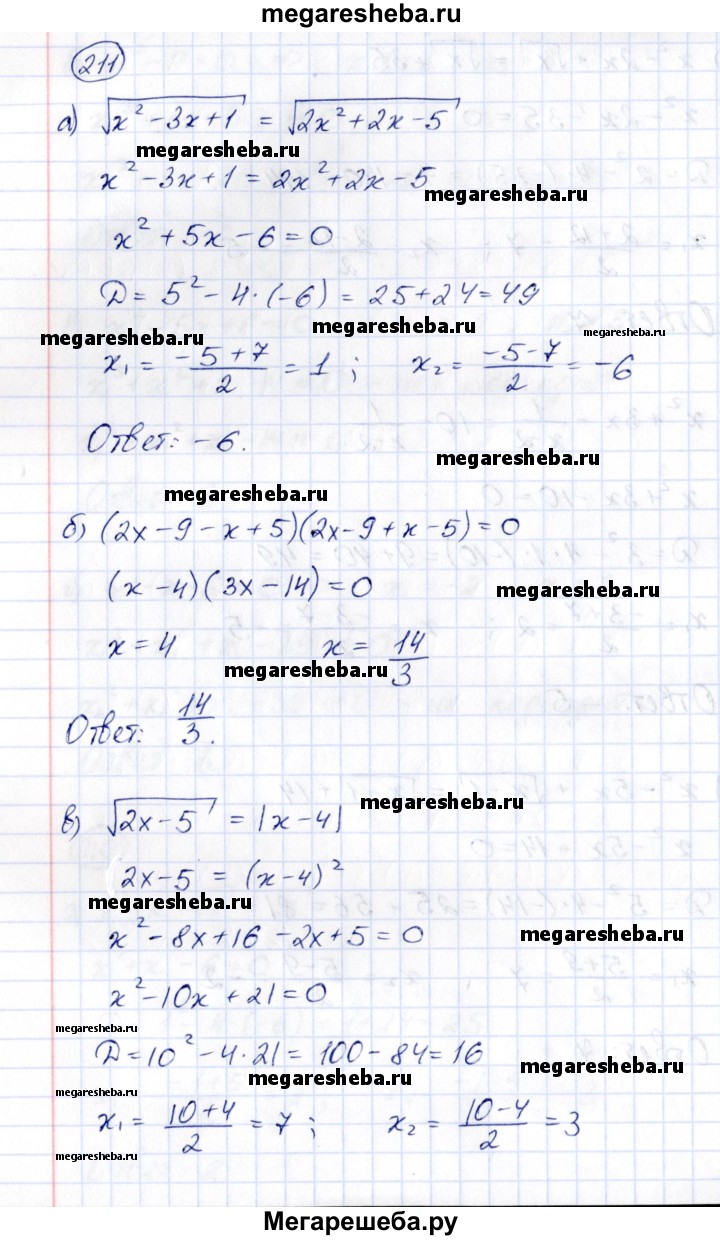 megaresheba.ru
211
а) √(x² - 3x + 1) = √(2x² + 2x - 5)
megaresheba.ru
x² - 3x + 1 = 2x² + 2x - 5
megaresheba.ru
x² + 5x - 6 = 0
D = 5² - 4 · (-6) = 25 + 24 = 49
megaresheba.ru megaresheba.ru megaresheba.ru
x₁ = (-5 + 7)/2 = 1 ; x₂ = (-5 - 7)/2 = -6
Ответ: -6.
megaresheba.ru
megaresheba.ru
б) (2x - 9 - x + 5)(2x - 9 + x - 5) = 0
(x - 4)(3x - 14) = 0
megaresheba.ru
x = 4 x = 14/3
megaresheba.ru
Ответ: 14/3.
megaresheba.ru
в) √(2x - 5) = |x - 4|
2x - 5 = (x - 4)²
megaresheba.ru
x² - 8x + 16 - 2x + 5 = 0
megaresheba.ru
x² - 10x + 21 = 0
megaresheba.ru
D = 10² - 4 · 21 = 100 - 84 = 16
megaresheba.ru
megaresheba.ru
megaresheba.ru
x₁ = (10 + 4)/2 = 7 ; x₂ = (10 - 4)/2 = 3
megaresheba.ru
Мегарешеба.ру